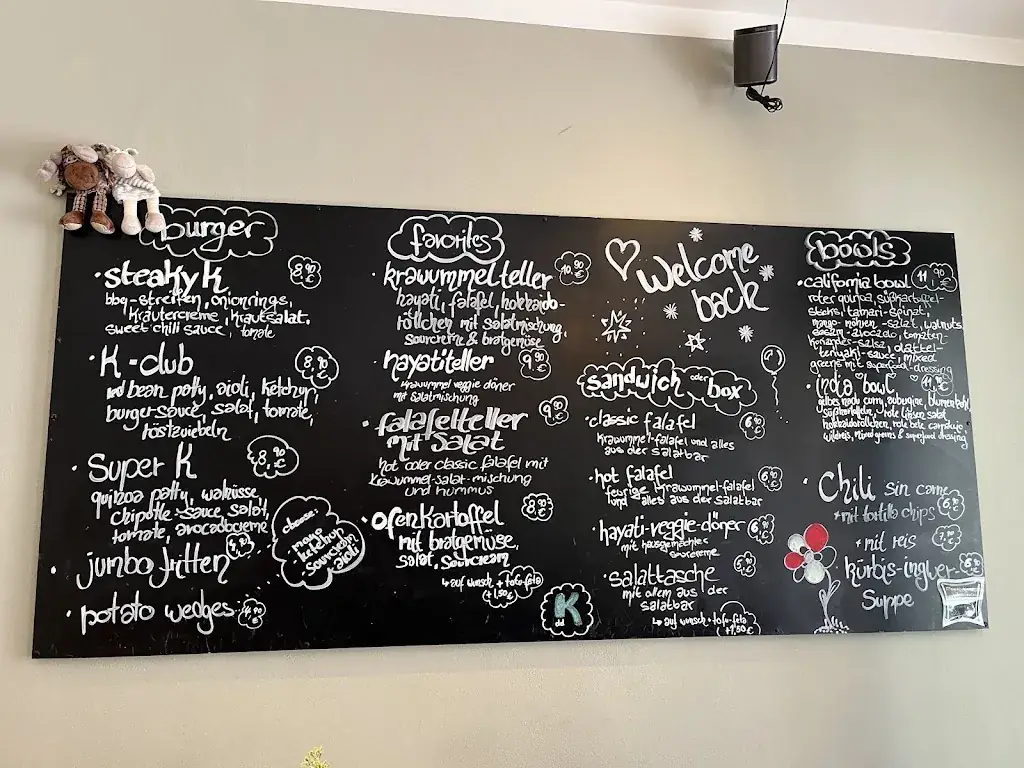 burger
• steaky K 8,90 €
bbq-streifen, onionrings,
kräutercreme, krautsalat,
sweet chili sauce, tomate
• K-club 8,90 €
red bean patty, aioli, ketchup,
burger-sauce, salat, tomate,
röstzwiebeln
• Super K 8,90 €
quinoa patty, walnüsse,
chipotle-sauce, salat,
tomate, avocadocreme
• jumbo fritten
• potato wedges 4,90 €
choose:
mayo
ketchup
sourcream
aioli
favorites
• krawummelteller 10,90 €
hayati, falafel, hokkaido-
röllchen mit salatmischung,
sourcreme & bratgemüse
• hayatiteller 9,90 €
krawummel veggie döner
mit salatmischung
• falafelteller 9,90 €
mit salat
hot oder classic falafel mit
krawummel-salat-mischung
und hummus
• ofenkartoffel 8,90 €
mit bratgemüse,
salat, sourcream
↳ auf wunsch + tofu-feta
(+1,50€)
K
dd
welcome
back
sandwich oder box
• classic falafel 6,90 €
krawummel-falafel und alles
aus der salatbar
• hot falafel 6,90 €
feurige krawummel-falafel
und alles aus der salatbar
• hayati-veggie-döner 6,90 €
mit hausgemachter
sourcreme
• salattasche 5,90 €
mit allem aus der
salatbar
↳ auf wunsch + tofu-feta
+1,50€
bowls
• california bowl 11,90 €
roter quinoa, süßkartoffel-
sticks, tamari-spinat,
mango-möhren-salat, walnuts
sesam-avocado, tomaten-
koriander-salsa, dattel-
teriyaki-sauce, mixed
greens mit superfood-dressing
• india bowl 11,90 €
gelbes madu curry, aubergine, blumenkohl,
süßkartoffeln, rote linsen salat
hokkaidoröllchen, rote bete
wildreis, mixed greens & superfood dressing
• Chili sin carne
+ mit tortilla chips 6,90 €
+ mit reis 7,90 €
• kürbis-ingwer-
Suppe